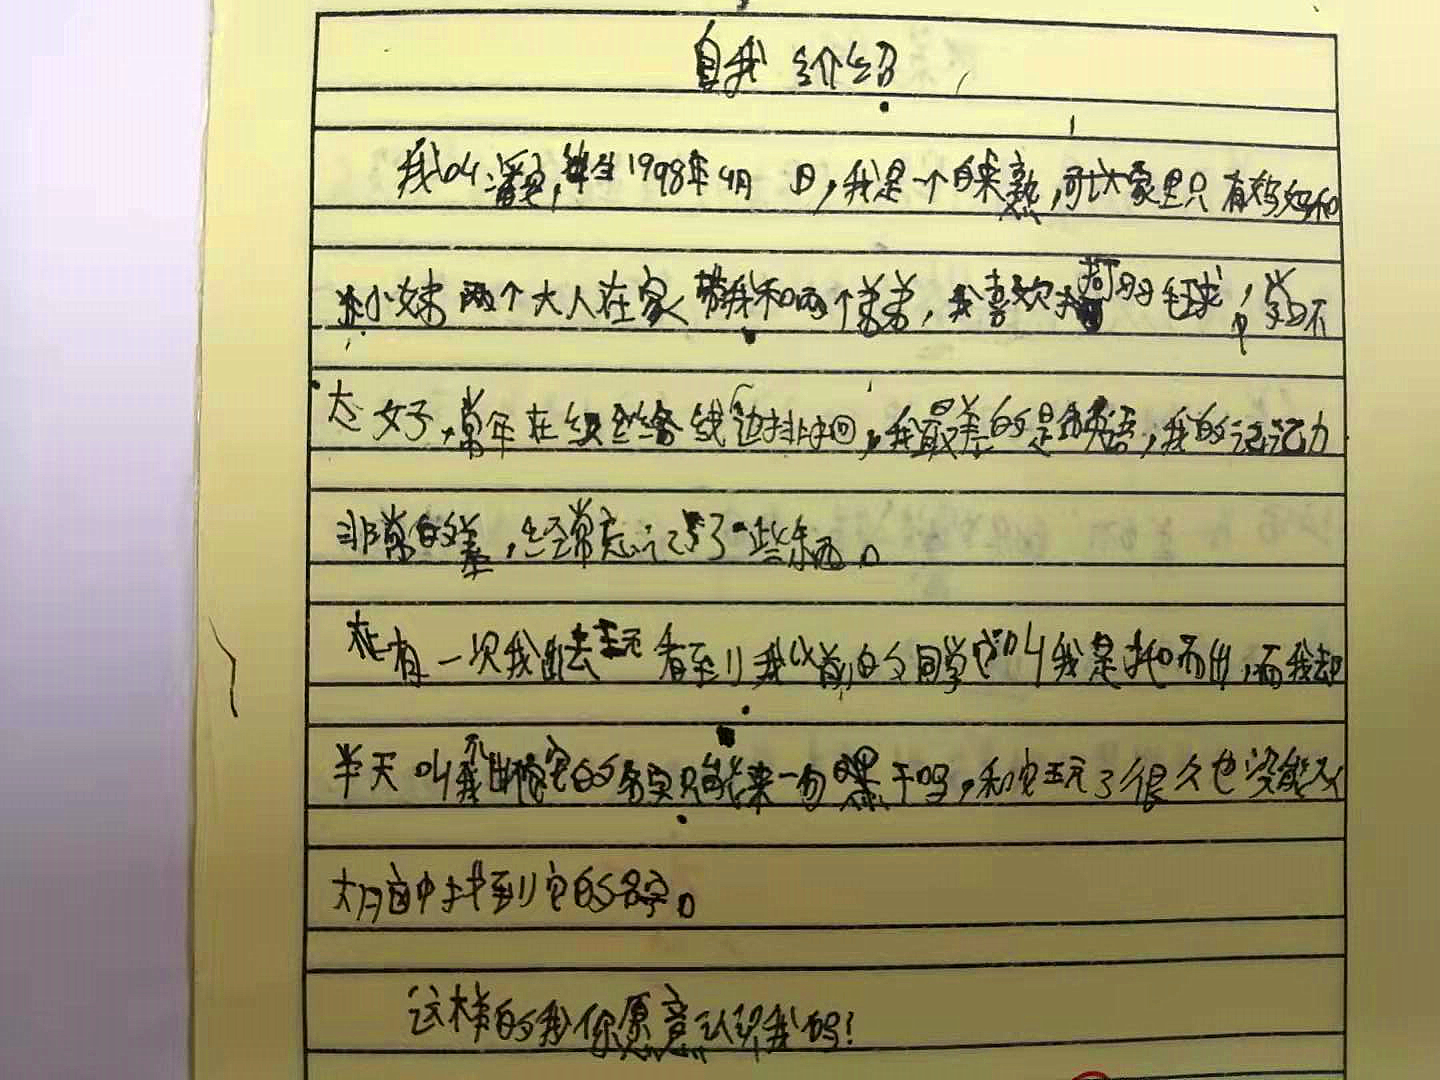 自我介绍
我叫潘,生1998年4月 日,我是一个自来熟,可大家里只有妈妈和
小妹两个大人在家带我和两个弟弟,我喜欢打羽毛球,学习不
太好,常年在级线边排徊,我最差的是英语,我的记记力
非常的差,经常忘记了一些东西。
在有一次我出去玩看到我以前的同学它叫我是托口而出,而我却
半天叫不出它的名字只能来一句嘿干吗,和它玩了很久也没能从
大脑中找到它的名字。
这样的我你愿意认识我吗!